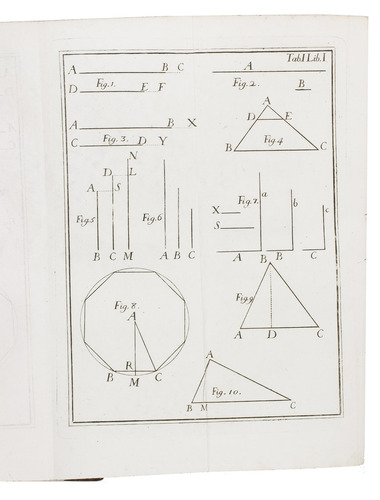 Tab.I Lib.I
A B C
D Fig.1. E F
A
Fig.2. B
A B X
C Fig.3. D Y
A
D E
B Fig.4 C
N
D L
A S
Fig.5
B C M
Fig.6
A B C
Fig.7.
a
b
c
X
S
A B B C
Fig.8.
A
B R C
M
Fig.9
A D C
B
Fig.10.
A
B M C